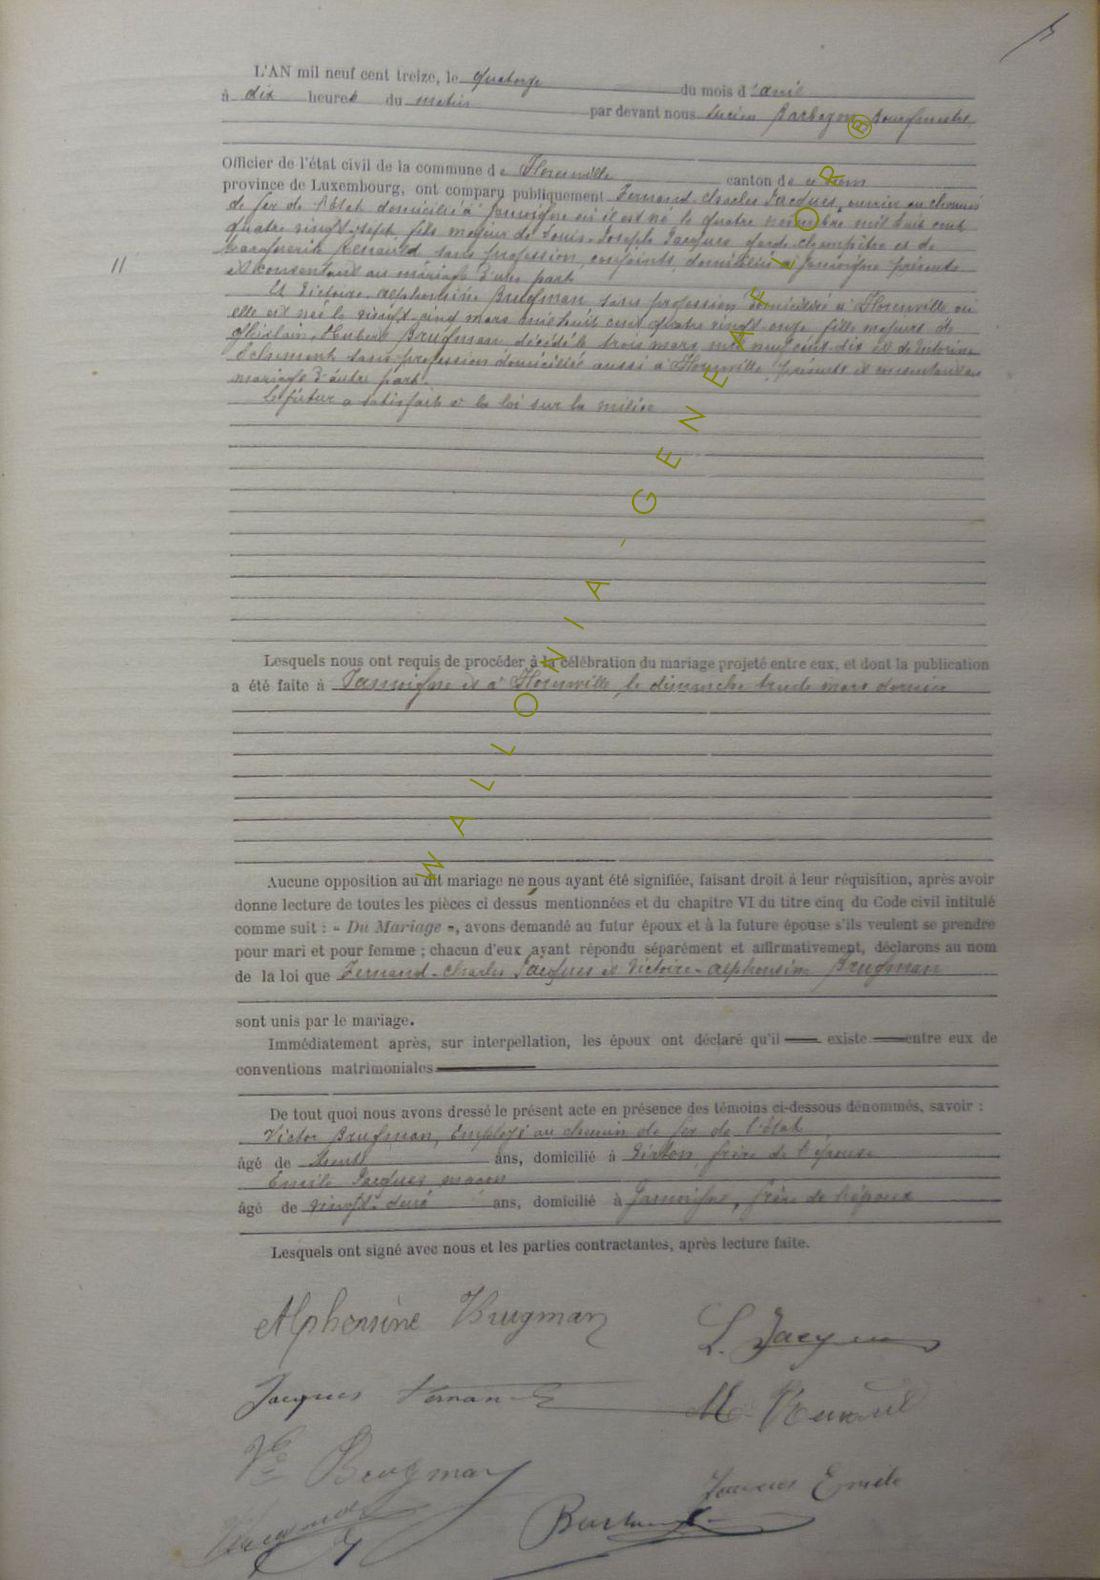 L'AN mil neuf cent treize, le quatorze du mois d'avril
à dix heures du matin par devant nous Lucien Bourgmestre
Officier de l'état civil de la commune de Florenville canton de ce nom
province de Luxembourg, ont comparu publiquement Fernand-Charles Jacques, ouvrier au chemin
de fer de l'Etat domicilié à Jamoigne où il est né le quatre novembre mil huit cent
quatre vingt-sept, fils majeur de Louis-Joseph Jacques garde-champêtre et de
Marguerite Renauld sans profession, conjoints, domiciliés à Jamoigne présents
et consentant au mariage d'une part
11
Et Victoire-Alphonsine Brugman sans profession domiciliée à Florenville où
elle est née le vingt-cinq mars mil huit cent quatre vingt-onze fille majeure de
Ghislain-Hubert Brugman décédé le trois mars mil neuf cent dix et de
sans profession domiciliée aussi à Florenville, présente et consentant au
mariage d'autre part.
Le futur a satisfait à la loi sur la milice
Lesquels nous ont requis de procéder à la célébration du mariage projeté entre eux, et dont la publication
a été faite à Jamoigne et à Florenville le dimanche trente mars dernier
Aucune opposition au dit mariage ne nous ayant été signifiée, faisant droit à leur réquisition, après avoir
donne lecture de toutes les pièces ci dessus mentionnées et du chapitre VI du titre cinq du Code civil intitulé
comme suit : « Du Mariage », avons demandé au futur époux et à la future épouse s'ils veulent se prendre
pour mari et pour femme ; chacun d'eux ayant répondu séparément et affirmativement, déclarons au nom
de la loi que Fernand-Charles Jacques et Victoire-Alphonsine Brugman
sont unis par le mariage.
Immédiatement après, sur interpellation, les époux ont déclaré qu'il existe entre eux de
conventions matrimoniales
De tout quoi nous avons dressé le présent acte en présence des témoins ci-dessous dénommés, savoir :
Victor Brugman, Employé au chemin de fer de l'état
âgé de trente ans, domicilié à Virton, frère de l'épouse
Emile Jacques maçon
âgé de vingt-deux ans, domicilié à Jamoigne, frère de l'époux
Lesquels ont signé avec nous et les parties contractantes, après lecture faite.
Alphonsine Brugman
L. Jacques
Jacques Fernand
M. Renauld
Ve Brugman
Jacques Emile
Brugman
WALLONIA-GENEALFLOR ®